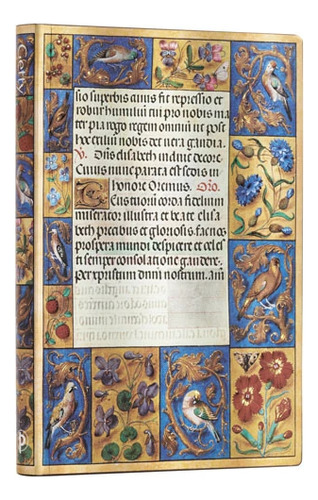 sio superbis cuius fit repressio et
robur humilui cui pro nobis ma
ter pia rogo regem omnium ut post
hoc exilui nobis det uera gaudia.
V. Dns elisabeth induit decore
Cuius nunc parata est sedis in
honore Oremus. Oro.
corda fidelium
miserator illustra et beate elisa
beth precibus et gloriosis. fac nos
prospera mundi despicere et celes
semper consolatione gaudere.
Per xpristum dnm nostrum. am